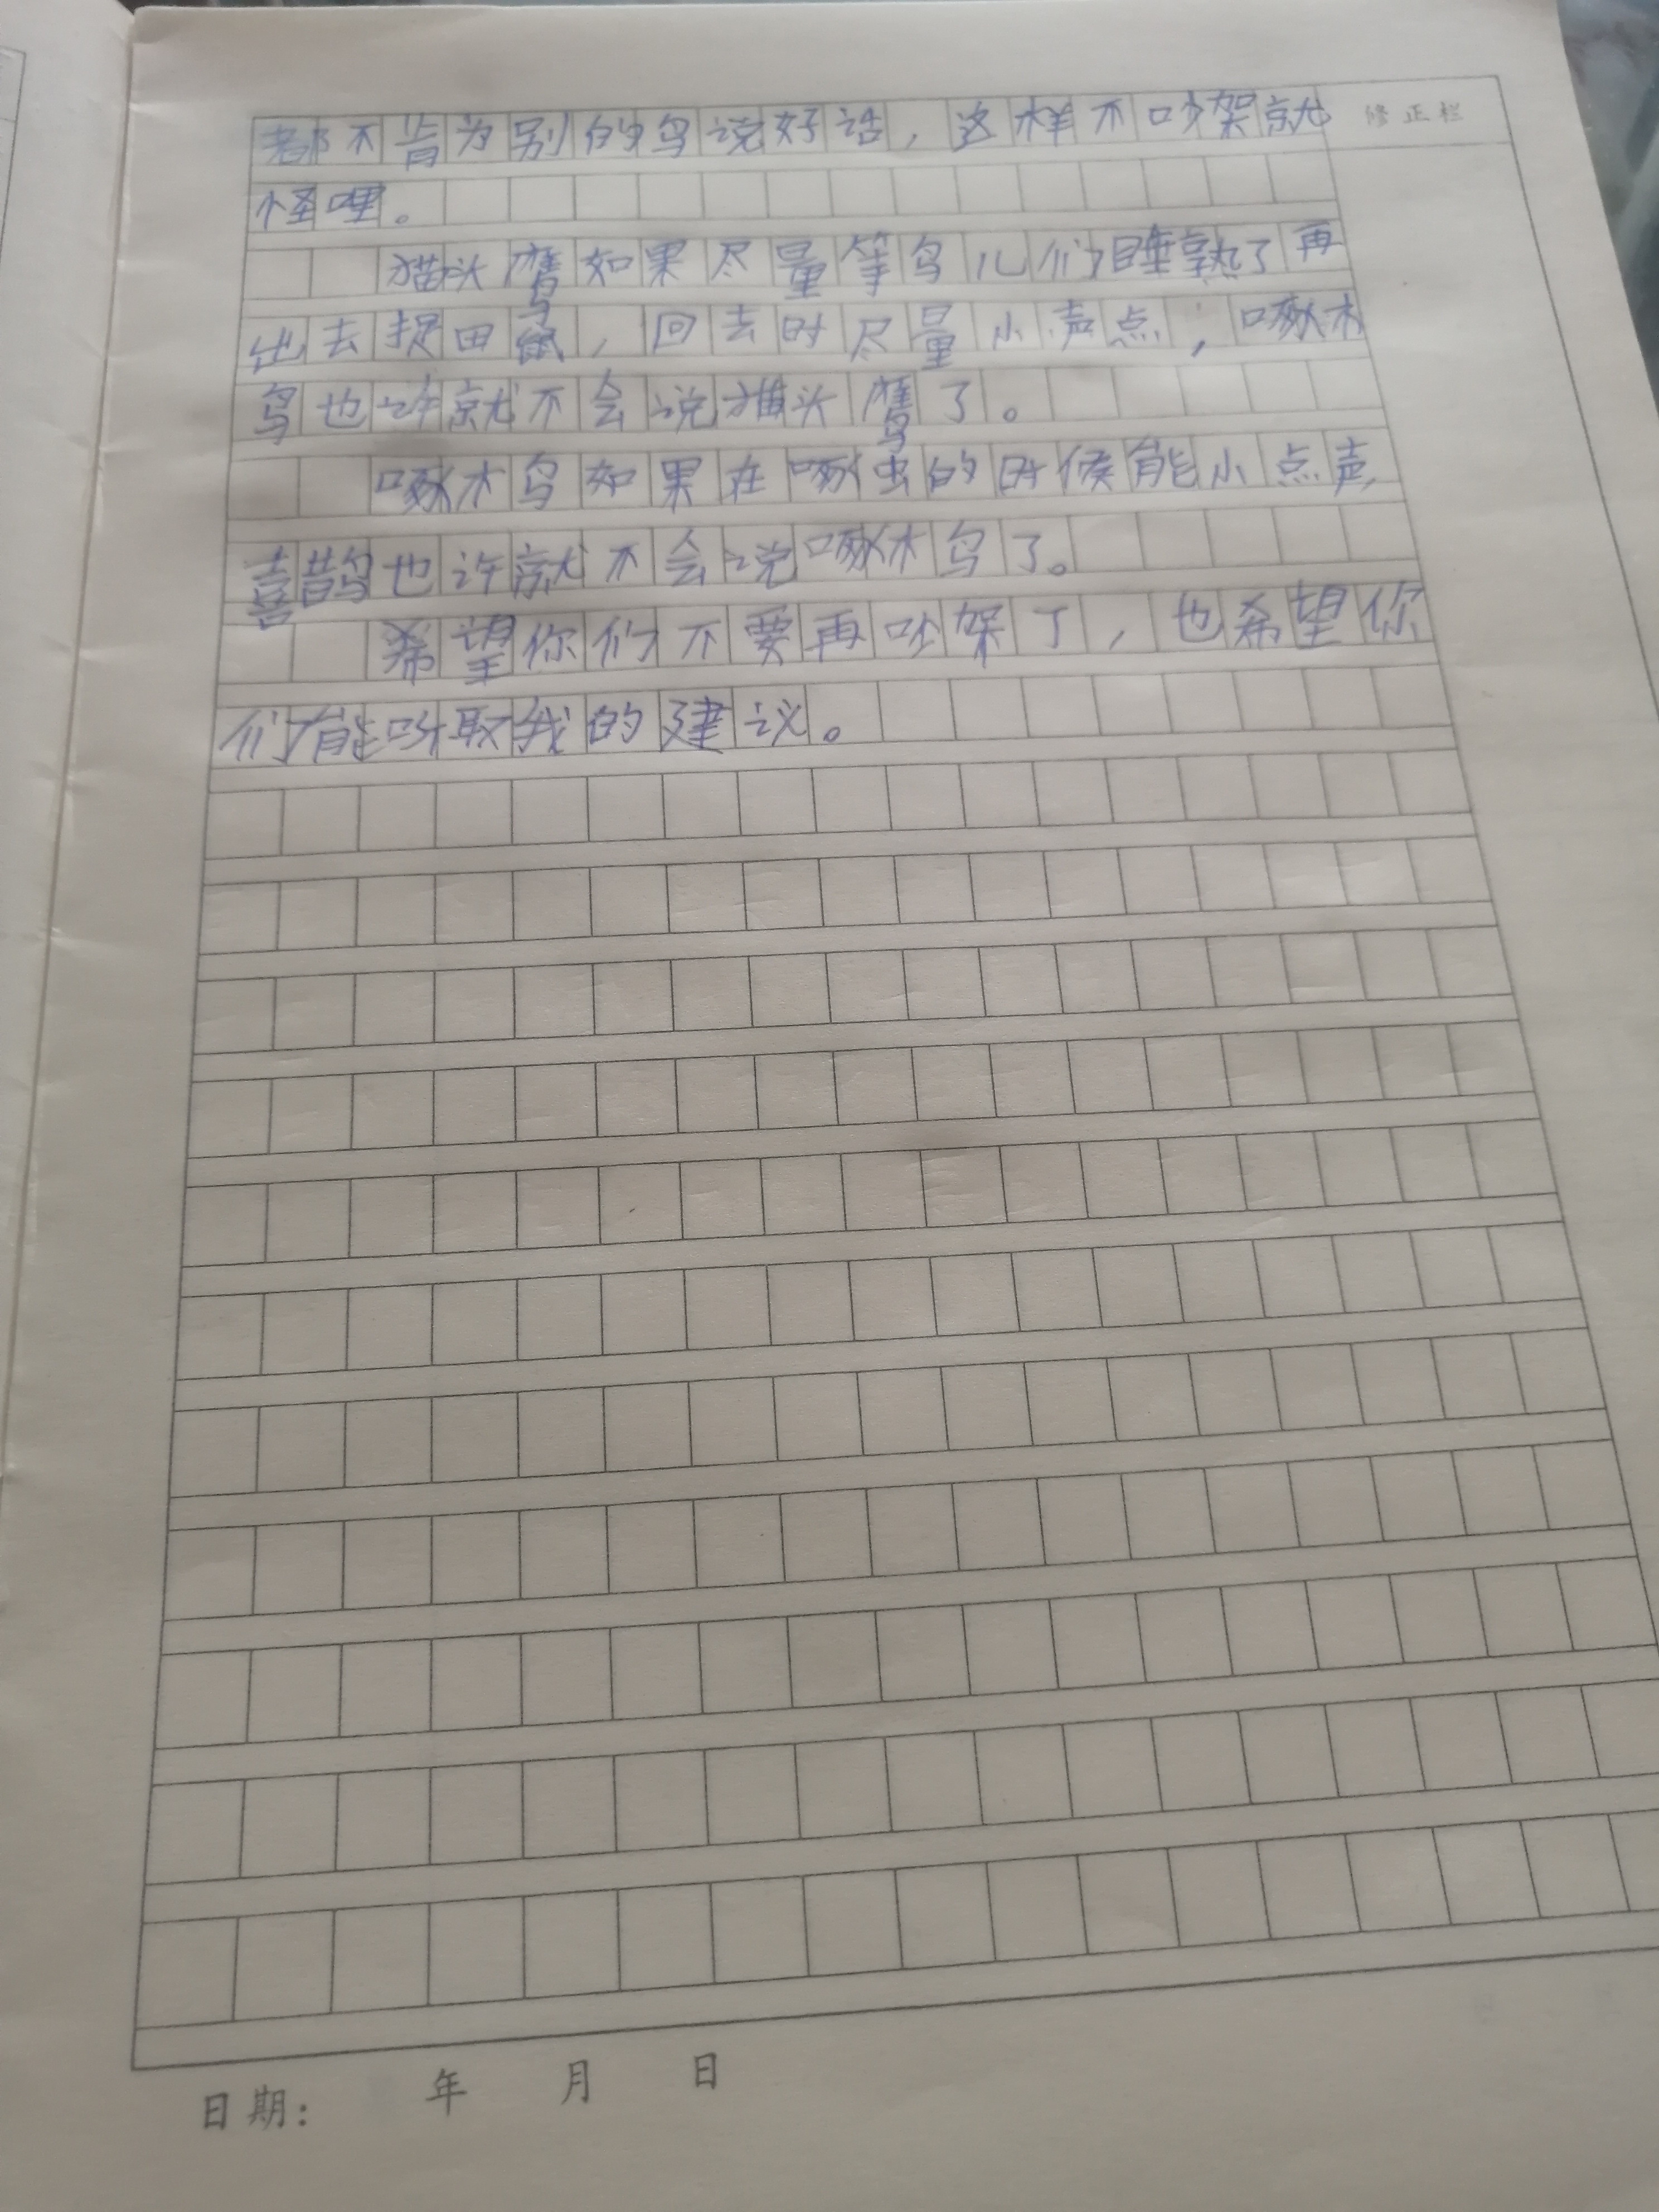 都不肯为别的鸟说好话，这样不吵架就
修正栏
怪哩。
猫头鹰如果尽量等鸟儿们睡熟了再
出去捉田鼠，回去时尽量小声点，啄木
鸟也许就不会说猫头鹰了。
啄木鸟如果在啄虫的时候能小点声，
喜鹊也许就不会说啄木鸟了。
希望你们不要再吵架了，也希望你
们能听取我的建议。
日期： 年 月 日